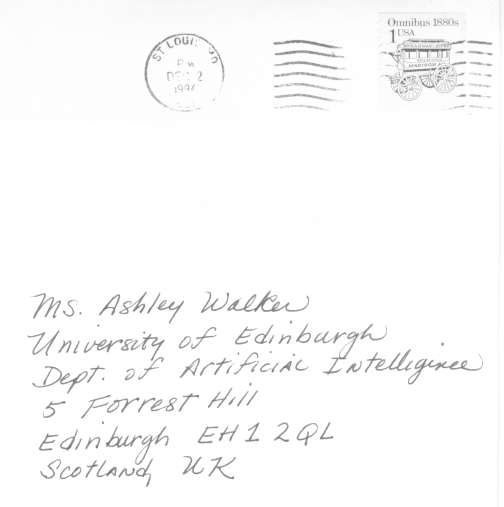 Omnibus 1880s
1 USA
ST LOUIS MO
PM
DEC 2
1994
BROADWAY
MADISON
Ms. Ashley Walker
University of Edinburgh
Dept. of Artificial Intelligince
5 Forrest Hill
Edinburgh EH1 2QL
Scotland, UK